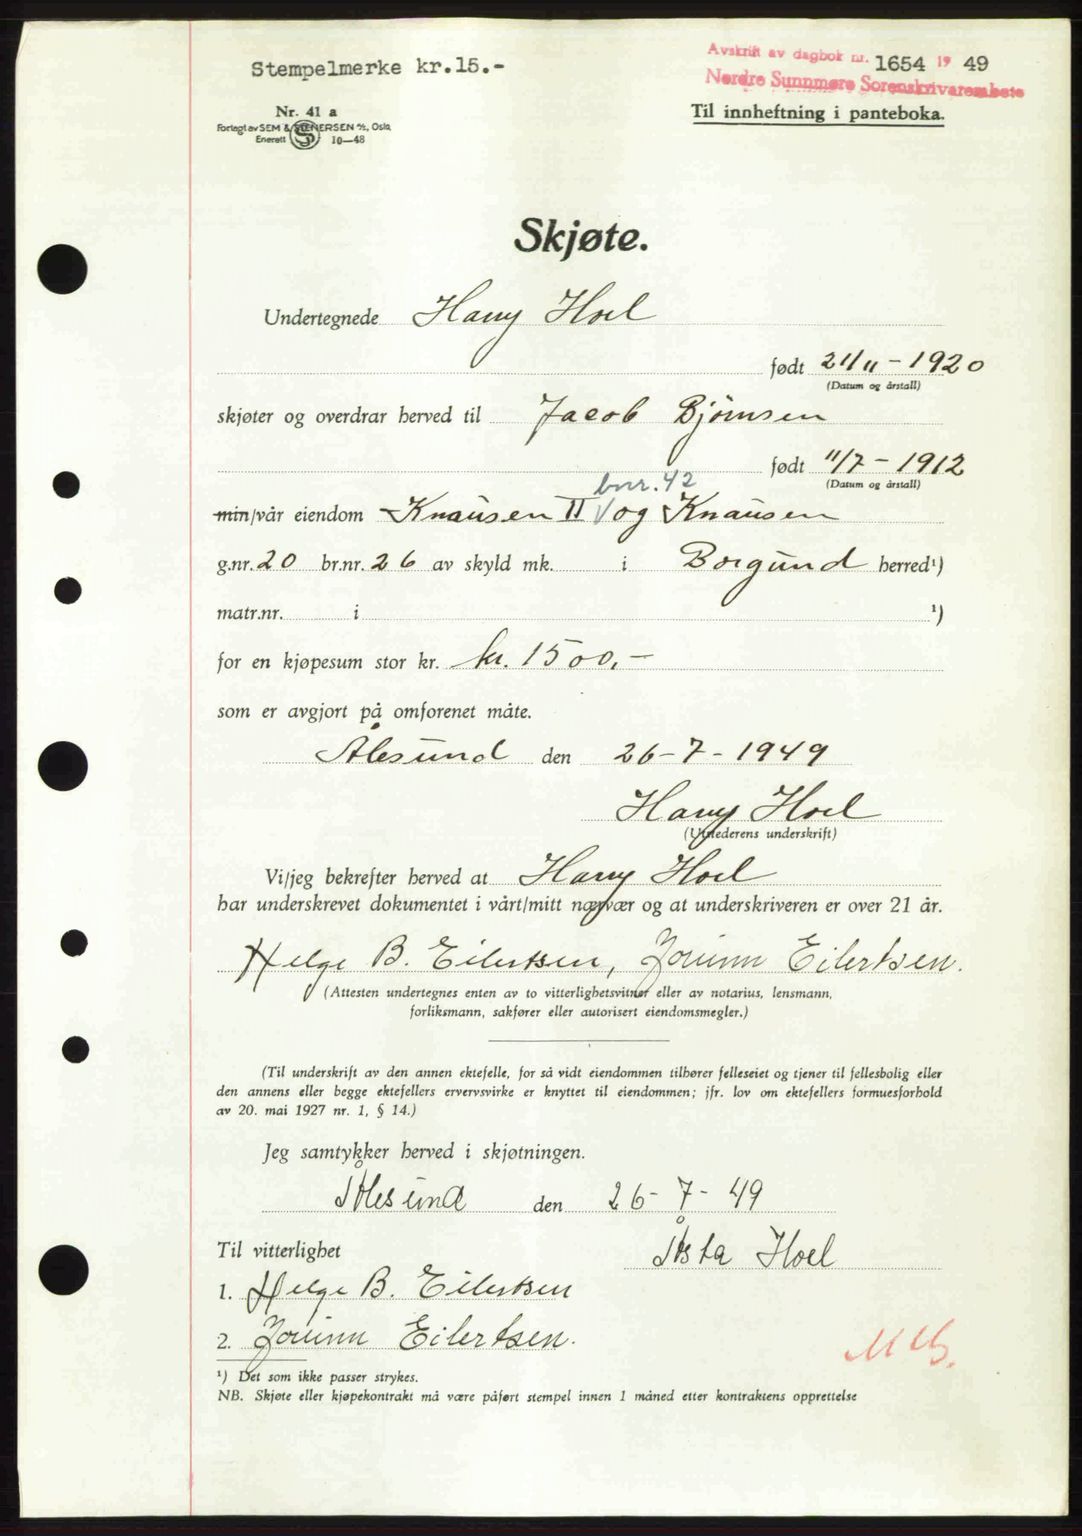 Stempelmerke kr.15.-
Avskrift av dagbok nr. 1654 19 49
Nordre Sunnmøre Sorenskrivarembete
Nr. 41 a
Forlagt av SEM & STENERSEN A/S, Oslo
Enerett S 10—48
Til innheftning i panteboka.
Skjøte.
Undertegnede Harry Hoel
født 21/11 - 1920
(Datum og årstall)
skjøter og overdrar herved til Jacob Bjørnsen
født 11/7 - 1912
(Datum og årstall)
bnr. 42
min/vår eiendom Knausen II V og Knausen
g.nr. 20 br.nr. 26 av skyld mk. i Borgund herred¹)
matr.nr. i ¹)
for en kjøpesum stor kr. kr. 1500,-
som er avgjort på omforenet måte.
Ålesund den 26-7-1949
Harry Hoel
(Utstederens underskrift)
Vi/jeg bekrefter herved at Harry Hoel
har underskrevet dokumentet i vårt/mitt nærvær og at underskriveren er over 21 år.
Helge B. Eilertsen, Jorunn Eilertsen.
(Attesten undertegnes enten av to vitterlighetsvitner eller av notarius, lensmann,
forliksmann, sakfører eller autorisert eiendomsmegler.)
(Til underskrift av den annen ektefelle, for så vidt eiendommen tilhører felleseiet og tjener til fellesbolig eller
den annens eller begge ektefellers ervervsvirke er knyttet til eiendommen; jfr. lov om ektefellers formuesforhold
av 20. mai 1927 nr. 1, § 14.)
Jeg samtykker herved i skjøtningen.
Ålesund den 26-7-49
Til vitterlighet Åsta Hoel
1. Helge B. Eilertsen
2. Jorunn Eilertsen.
¹) Det som ikke passer strykes.
NB. Skjøte eller kjøpekontrakt må være påført stempel innen 1 måned etter kontraktens opprettelse